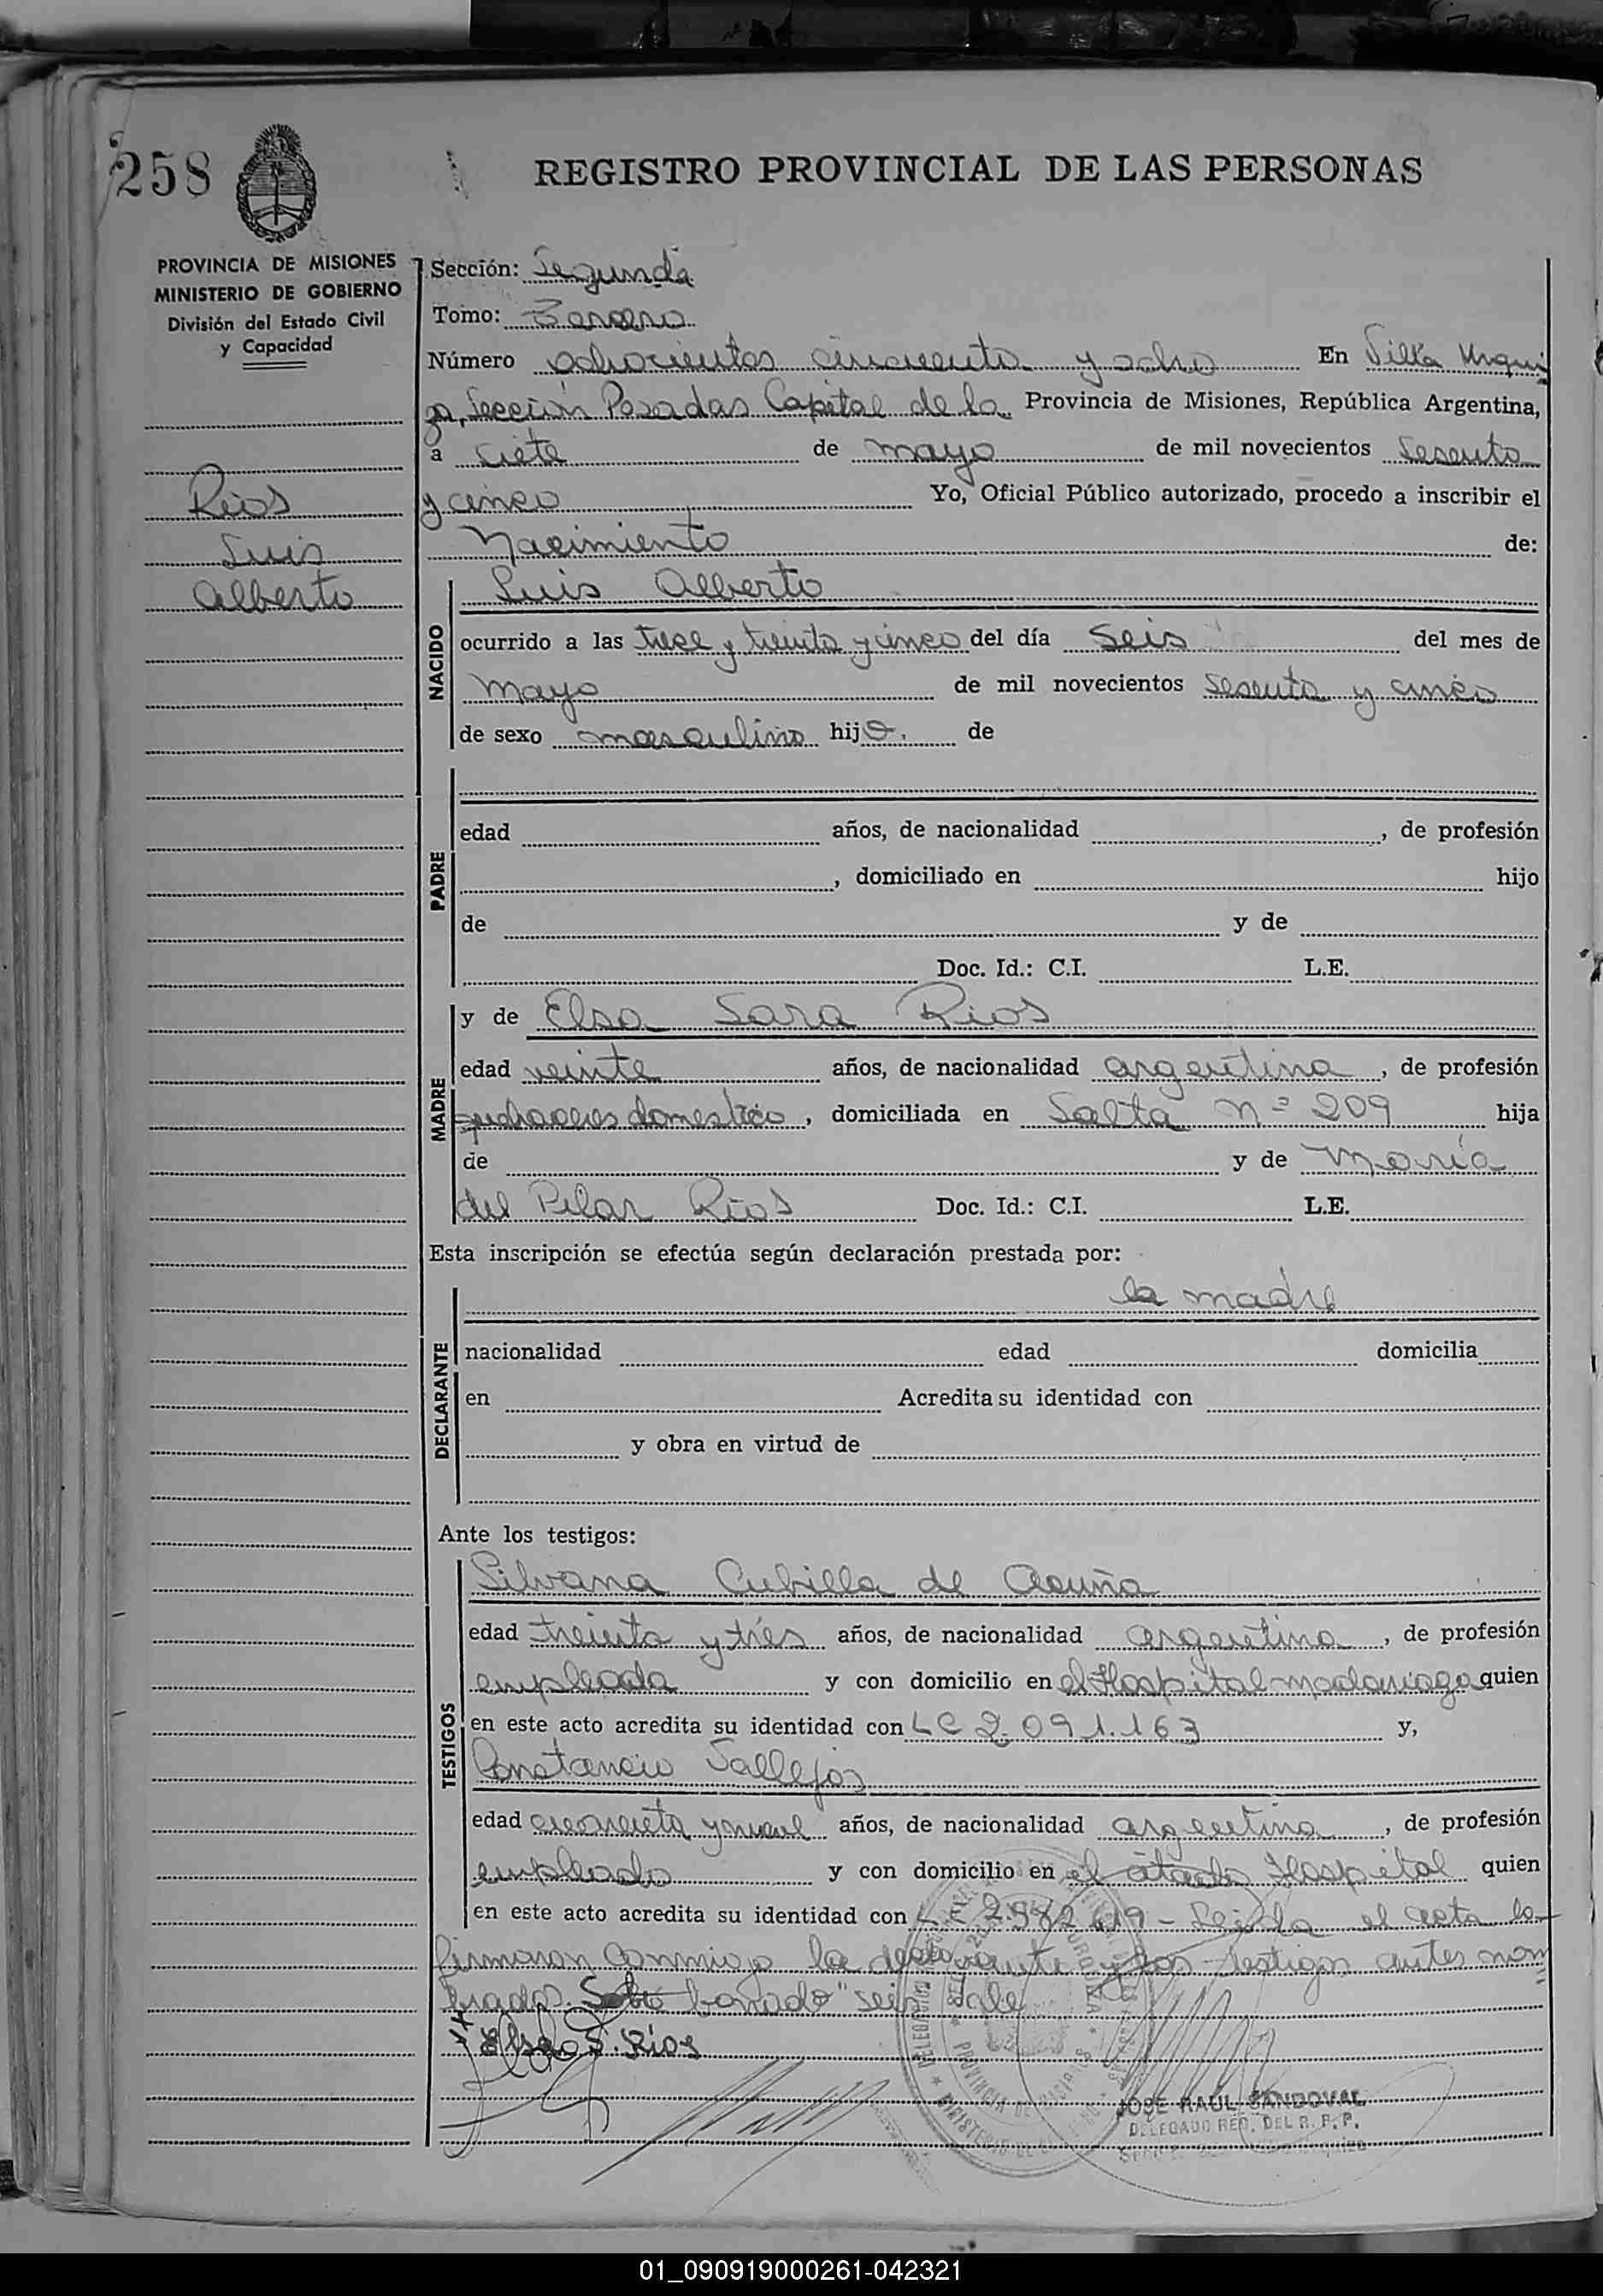 258
REGISTRO PROVINCIAL DE LAS PERSONAS
PROVINCIA DE MISIONES
MINISTERIO DE GOBIERNO
División del Estado Civil
y Capacidad
Rios
Luis
Alberto
Sección: Segunda
Tomo: Tercero
Número ochocientos cincuenta y ocho En Villa Urqui
za, Sección Posadas Capital de la Provincia de Misiones, República Argentina,
a siete de mayo de mil novecientos sesenta
y cinco Yo, Oficial Público autorizado, procedo a inscribir el
Nacimiento de:
NACIDO
Luis Alberto
ocurrido a las trece y treinta y cinco del día Seis del mes de
mayo de mil novecientos sesenta y cinco
de sexo masculino hijo. de
PADRE
edad años, de nacionalidad , de profesión
, domiciliado en hijo
de y de
Doc. Id.: C.I. L.E.
MADRE
y de Elsa Sara Rios
edad veinte años, de nacionalidad argentina, de profesión
quehaceres domestico, domiciliada en Salta Nº 209 hija
de y de María
del Pilar Rios Doc. Id.: C.I. L.E.
Esta inscripción se efectúa según declaración prestada por:
DECLARANTE
la madre
nacionalidad edad domicilia
en Acredita su identidad con
y obra en virtud de
Ante los testigos:
TESTIGOS
Silvana Cubilla de Acuña
edad treinta y trés años, de nacionalidad argentina, de profesión
empleada y con domicilio en el Hospital madariaga quien
en este acto acredita su identidad con LC 2.091.163 y,
Constancio Vallejos
edad cuarenta y nueve años, de nacionalidad argentina, de profesión
empleado y con domicilio en el citado Hospital quien
en este acto acredita su identidad con L.E 2582619 - Leida el acta la
firmaron conmigo la declarante y los testigos antes nom
brados. Sobre borrado "seis" Vale
Elsa S. Rios
JOSE RAUL SANDOVAL
DELEGADO REG. DEL R. P. P.
01_090919000261-042321